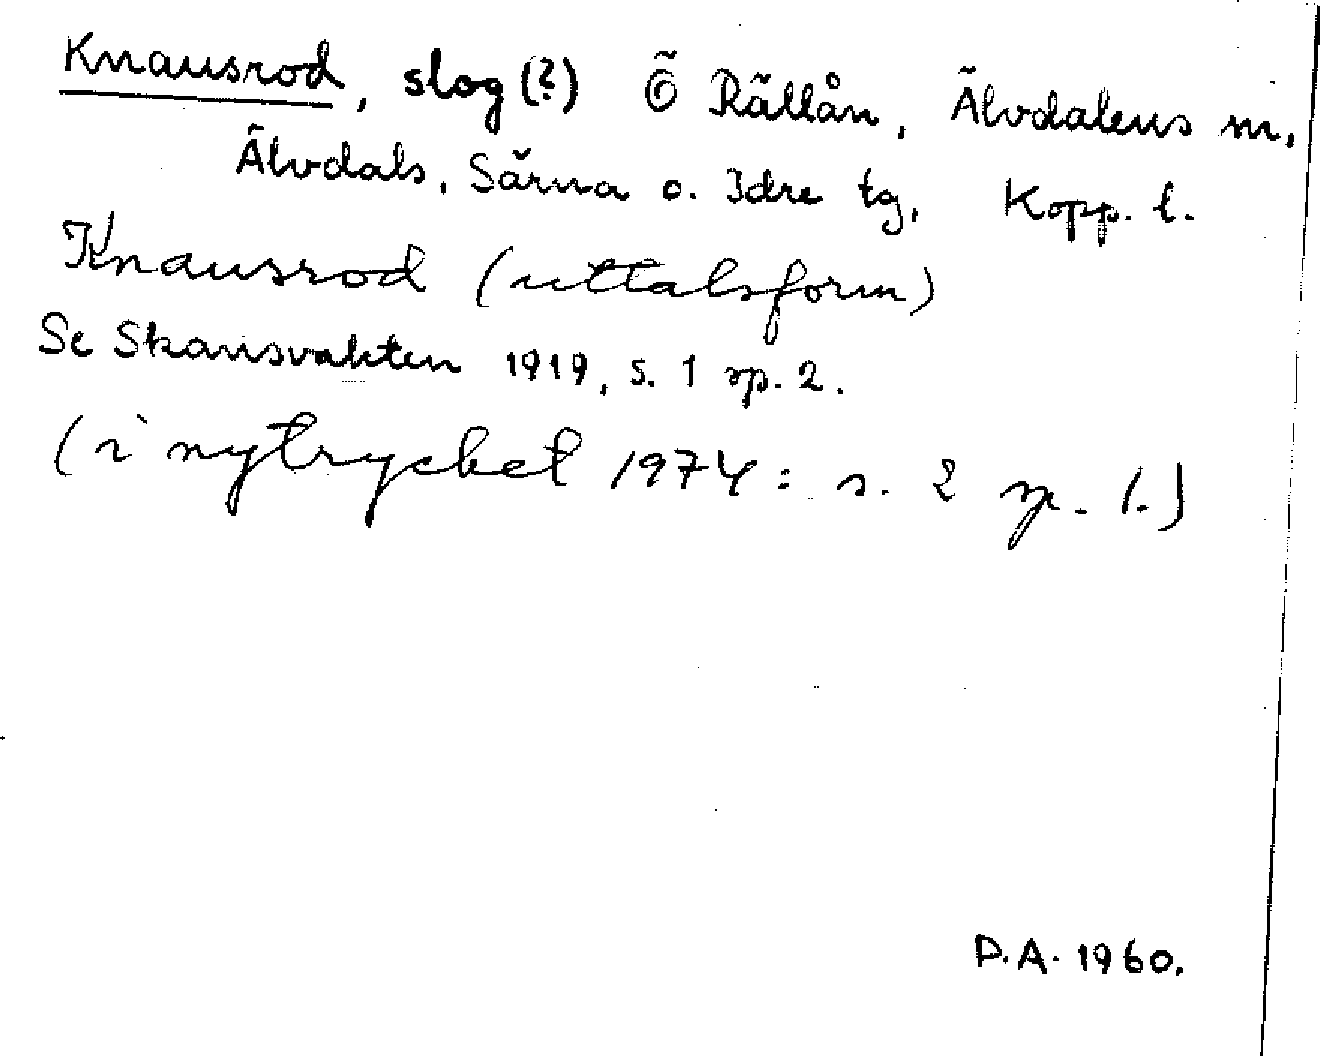 Knausrod, slog (?) Ö Rällån, Älvdalens m,
Älvdals, Särna o. Idre tg, Kopp. l.
Knausrod (uttalsform)
Se Skansvakten 1919, s. 1 sp. 2.
(i nytrycket 1974: s. 2 sp. 1.)
D.A. 1960.